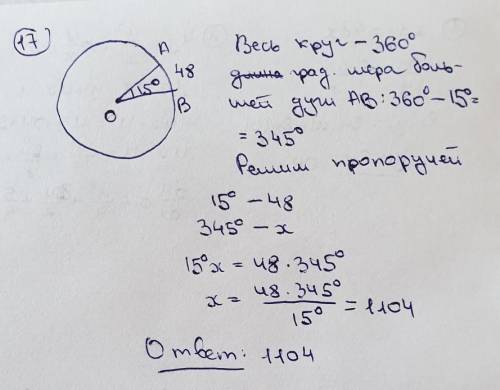 17
A
48
15°
B
O
Весь круг – 360°
длина град. мера боль-
шей дуги AB: 360° – 15° =
= 345°
Решим пропорцией
15° – 48
345° – x
15°x = 48 · 345°
x = 48 · 345° / 15° = 1104
Ответ: 1104